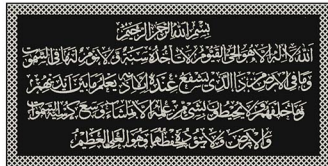 بسم الله الرحمن الرحيم
الله لا إله إلا هو الحي القيوم لا تأخذه سنة ولا نوم له ما في السموات
وما في الأرض من ذا الذي يشفع عنده إلا بإذنه يعلم ما بين أيديهم
وما خلفهم ولا يحيطون بشيء من علمه إلا بما شاء وسع كرسيه السموات
والأرض ولا يؤده حفظهما وهو العلي العظيم